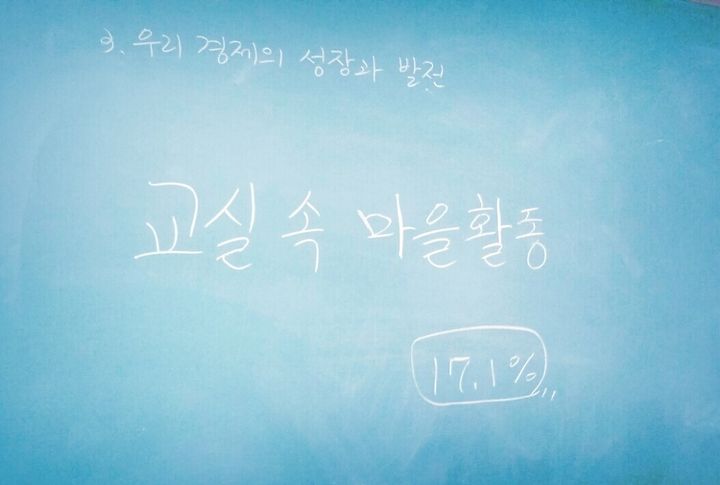 3. 우리 경제의 성장과 발전
교실 속 마을활동
17.1%